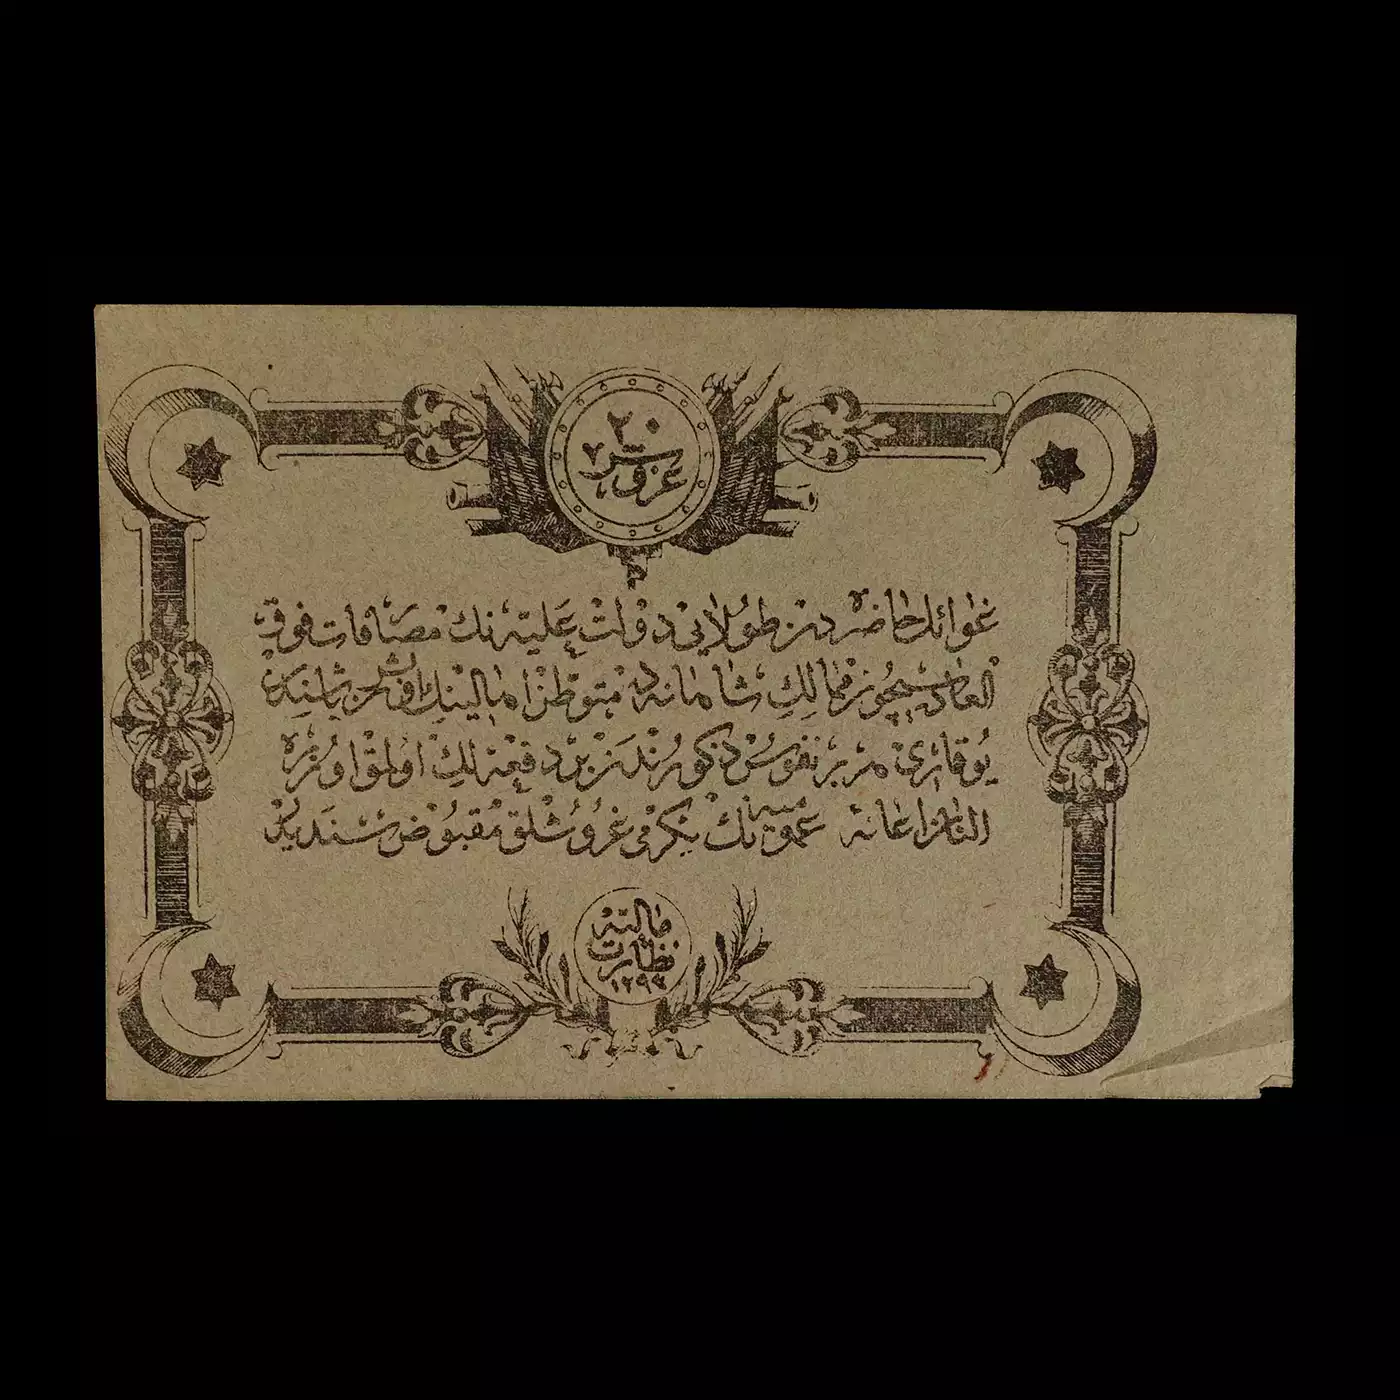 ٢٠
غروش
غوائل حاضره دن طولايى دولت عليه نك مصارفات فوق
العاده سيچون ممالك شاهانه ده متوطن اهالينك اون ياشندن
يوقارى هر بر نفوس ذكورندن بر دفعه لك اولمق اوزره
النان اعانه عموميه نك يكرمى غروشلق مقبوض سنديدر
ماليه
نظارت
١٢٩٣